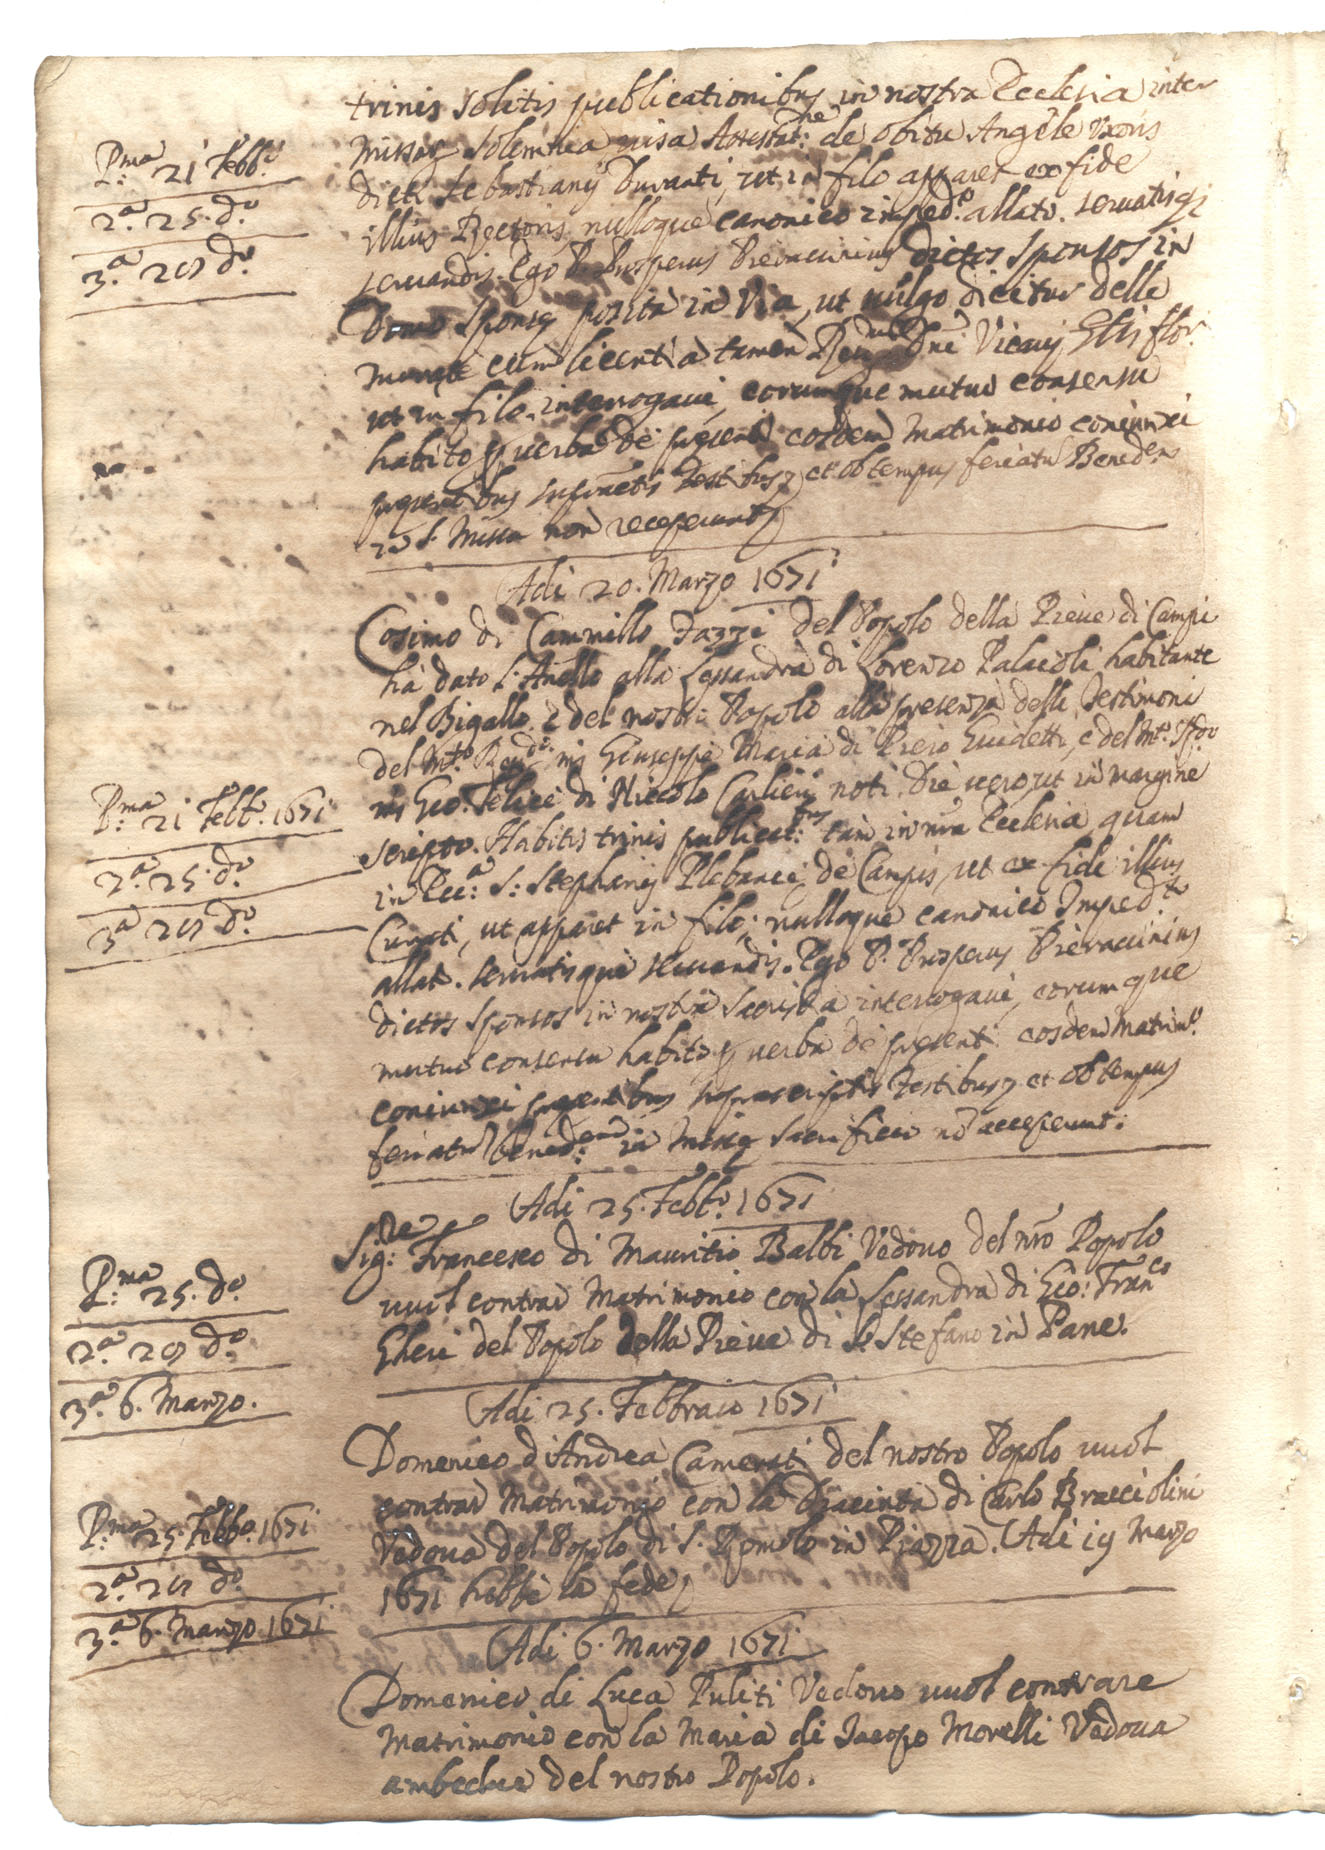 trinis solitis publicationibus in nostra Ecclesia inter
Missarũ solemnia visa Attestat:ne de obitu Angele Uxoris
P:ma 21 Febb:o
dicti Sebastianij Duranti, ut in filo apparet ex fide
2.a 25. d.o
illius Rectoris nulloque canonico imped.o allato. servatisq;
3.a 29 d.o
servandis. Ego P. Prosperus Pieraccinius dictos sponsos in
Domo sponsę posita in Via, ut vulgo dicitur delle
Murate cum licentia tamen Reu:dmi Dñi Vicarij Glis flor:
ut in filo. interrogavi, eorumque mutuo consensu
habito p verba de presenti eosdem Matrimonio coniunxi
presentibus infractis Testibus, et ob tempus feriatũ Bened:em
in S. Missa non receperunt
Adi 20. Marzo 1671
Cosimo di Cammillo Fazzi del Popolo della Pieve di Campi
hà dato l'Anello alla Lessandra di Lorenzo Palacioli habitante
nel Bigallo e del nostro Popolo alla presenza delli Testimoni
del M:to Reu:do: Giuseppe Maria di Piero Guidetti, e del M:to
P:ma 21 Febb:o 1671
Gio: Felice di Niccolo Carlieri noti. Die vero, ut in margine
2.a 25. d.o
scripto. Habitis trinis publicat:bus tam in nrã Ecclesia quam
3.a 29 d.o
in Ecc:a S: Stephanij Plebanei de Campis, ut ex fide illius
Curati, ut apparet in filo; nulloque canonico Imped:to
allat. servatisque servandis. Ego P. Prosperus Pieraccinius
dictos sponsos in nostra sacristia interrogavi, eorumque
mutuo consensu habito p verba de presenti eosdem Matrim:o
coniunxi presentibus suprascriptis Testibus, et ob tempus
feriatũ bened:em in Missę sacrificio nõ acceperunt.
Adi 25. Febb:o 1671
Sig:re Francesco di Mauritio Balbi Vedovo del nrõ Popolo
P:ma 25. d.o
vuol contrar Matrimonio con la Lessandra di Gio: Fran:co
2.a 29 d.o
Gheri del Popolo della Pieve di S. Stefano in Pane.
3.a 6. Marzo.
Adi 25. Febbraio 1671
Domenico d'Andrea Camerati del nostro Popolo vuol
P:ma 25. Febb:o 1671
contrar Matrimonio con la Diacinta di Carlo Bracciolini
2.a 29 d.o
Vedova del Popolo di S. Romolo in Piazza. Adi 19 Marzo
3.a 6. Marzo 1671
1671 hebbe la fede
Adi 6. Marzo 1671
Domenico di Luca Puliti Vedovo vuol contrare
Matrimonio con la Maria di Jacopo Morelli Vedova
ambedue del nostro Popolo.